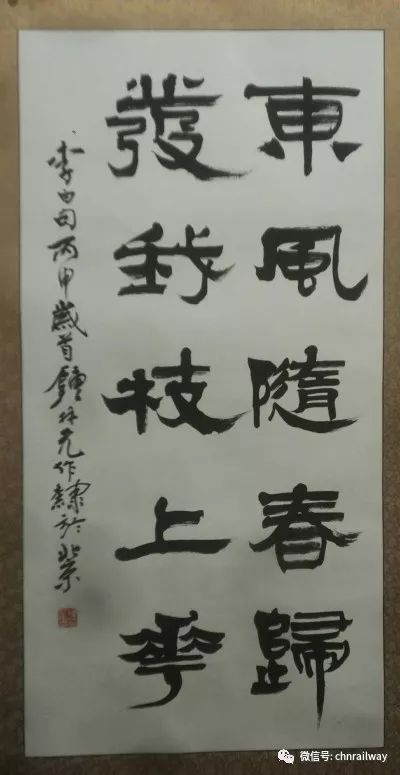 東風隨春歸
發我枝上花
李白句丙申歲首鍾林元作隸於北京
微信号: chnrailway